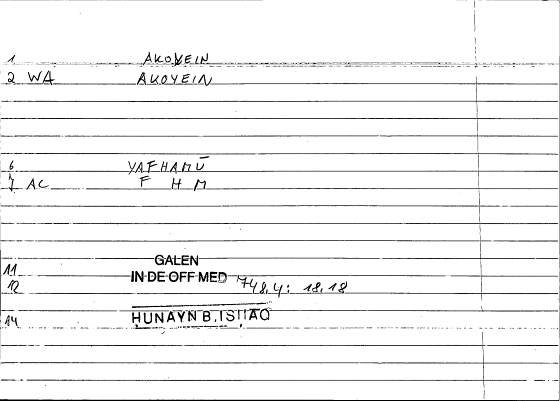 1 AKOYEIN
2 WA AKOYEIN
6 YAFHAMŪ
7 AC F H M
11 GALEN
12 IN DE OFF MED 748,4: 18.18
14 ḤUNAYN B. ISḤAQ